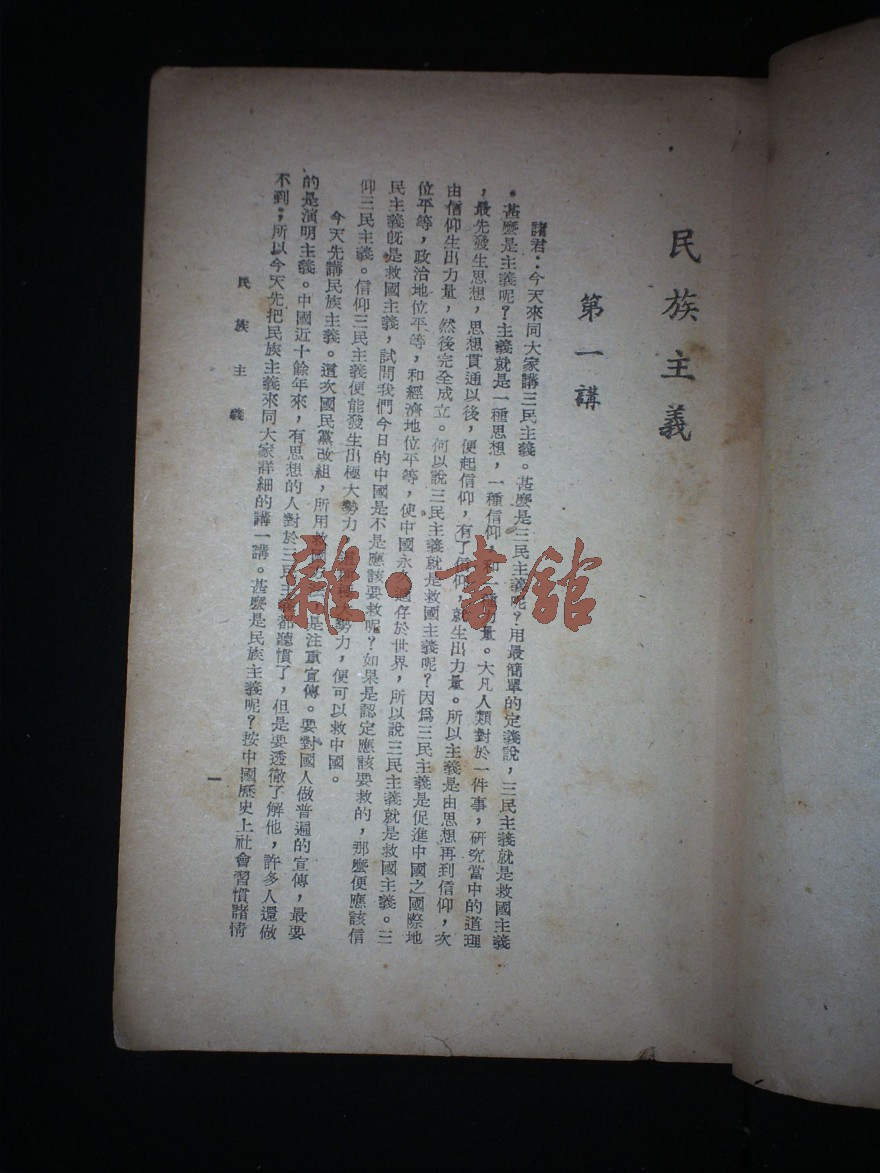 民族主義
第一講
諸君：今天來同大家講三民主義。甚麼是三民主義呢？用最簡單的定義說，三民主義就是救國主義
。甚麼是主義呢？主義就是一種思想，一種信仰，和一種力量。大凡人類對於一件事，研究當中的道理
，最先發生思想，思想貫通以後，便起信仰，有了信仰，就生出力量。所以主義是由思想再到信仰，次
由信仰生出力量，然後完全成立。何以說三民主義就是救國主義呢？因爲三民主義是促進中國之國際地
位平等，政治地位平等，和經濟地位平等，使中國永久適存於世界，所以說三民主義就是救國主義。三
民主義旣是救國主義，試問我們今日的中國是不是應該要救呢？如果是認定應該要救的，那麼便應該信
仰三民主義。信仰三民主義便能發生出極大勢力，這種極大勢力，便可以救中國。
今天先講民族主義。這次國民黨改組，所用救國方法，是注重宣傳。要對國人做普遍的宣傳，最要
的是演明主義。中國近十餘年來，有思想的人對於三民主義都聽慣了，但是要透徹了解他，許多人還做
不到；所以今天先把民族主義來同大家詳細的講一講。甚麼是民族主義呢？按中國歷史上社會習慣諸情
民族主義
一
雜·書館